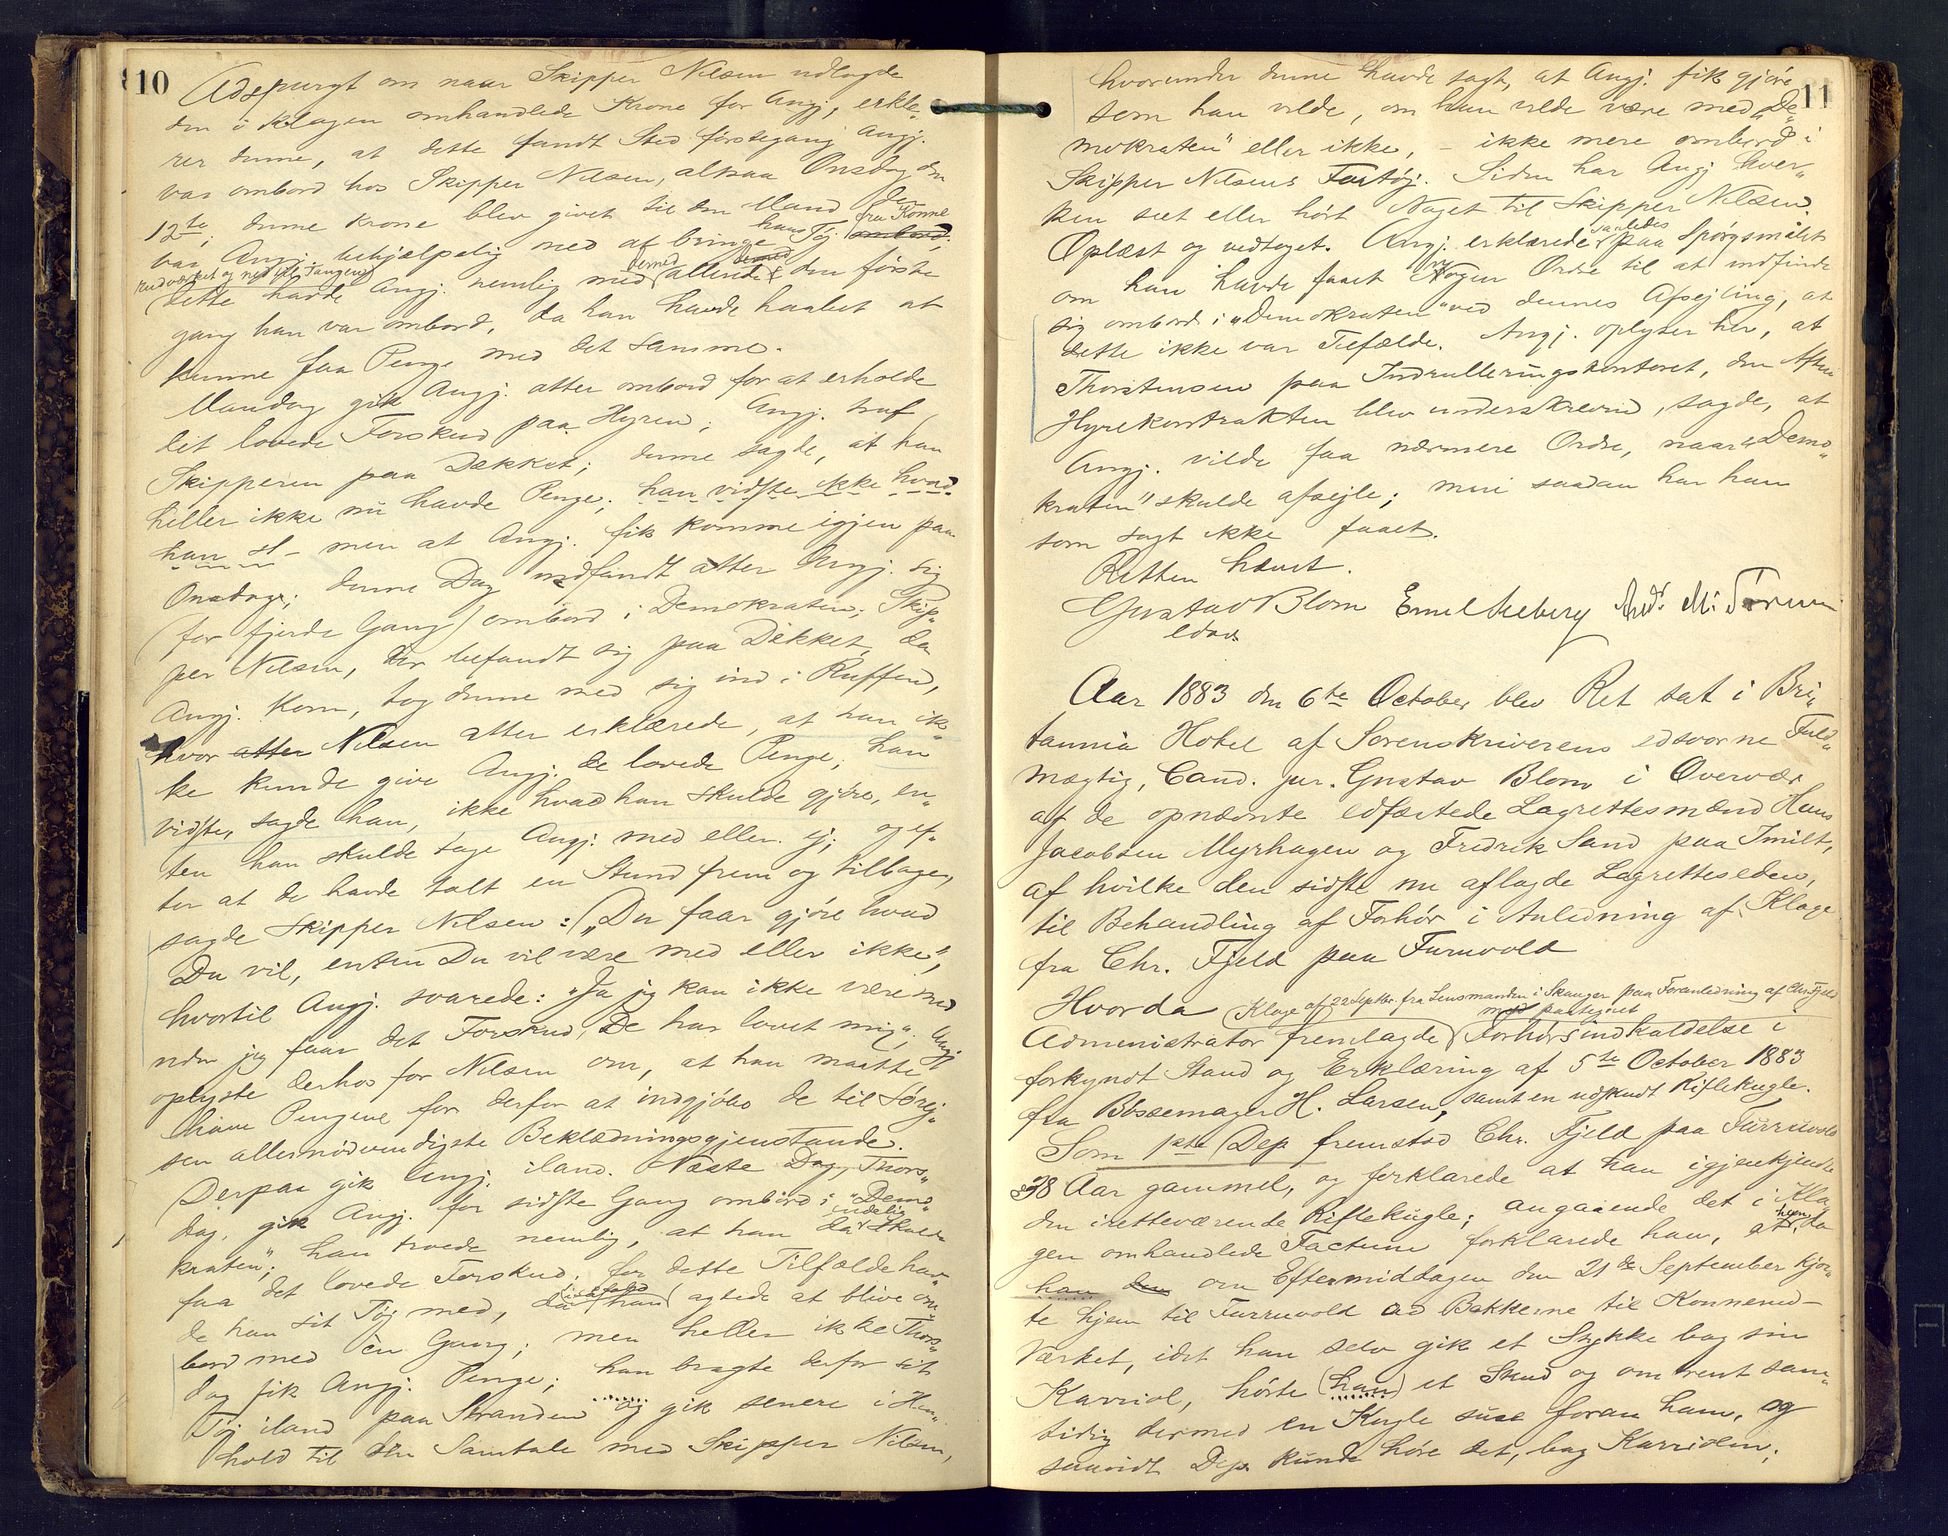 10
Adspurgt om naar Skipper Nilsen udlagde
den i Klagen omhandlede Krone for Angj, erklæ-
rer denne, at dette fandt Sted førstegang Angj.
var ombord hos Skipper Nilsen, altsaa Onsdag den
12te; denne Krone blev givet til den Mand der
var Angj. behjælpelig med at bringe hans Tøj fra Konne-
rudværket og ned til Tangen
dette havde Angj. nemlig med allerede den første
gang han var ombord, da han havde haabet at
kunne faa Penge med det samme.
Mandag gik Angj. atter ombord for at erholde
det lovede Forskud paa Hyren; Angj. traf
Skipperen paa Dækket; denne sagde, at han
heller ikke nu havde Penge; han vidste ikke hvad
han sk- men at Angj. fik komme igjen paa
Onsdag; denne Dag indfandt atter Angj. sig
(for fjerde Gang) ombord i Demokraten; Skip-
per Nilsen, der befandt sig paa Dækket, da
Angj. kom, tog denne med sig ind i Ruffen,
hvor atter Nilsen atter erklærede, at han ik-
ke kunde give Angj. de lovede Penge; han
vidste, sagde han, ikke hvad han skulde gjøre, en-
ten han skulde tage Angj. med eller ej; og ef-
ter at de havde talt en Stund frem og tilbage,
sagde Skipper Nilsen: „Du faar gjøre hvad
Du vil, enten Du vil være med eller ikke",
hvortil Angj. svarede: „Ja jeg kan ikke være med
uden jeg faar det Forskud, De har lovet mig"; Angj
oplyste derhos for Nilsen om, at han maatte
have Pengene for derfor at indkjøbe de til Sørej-
sen allernødvendigste Beklædningsgjenstande.
Derpaa gik Angj. iland. Næste Dag, Thors-
dag, gik Angj. for sidste Gang ombord i „Demo-
kraten"; han troede nemlig, at han da endelig skulde
faa det lovede Forskud; for dette Tilfælde hav-
de han sit Tøj med, da han isaafald agtede at blive om-
bord med èn Gang; men heller ikke Thors-
dag fik Angj. Penge; han bragte derfor sit
Tøj iland paa Stranden og gik senere i Hen-
hold til den Samtale med Skipper Nilsen,
11
hvorunder denne havde sagt, at Angj. fik gjøre
som han vilde, om han vilde være med „De-
mokraten" eller ikke, - ikke mere ombord i
Skipper Nilsens Fartøj. Siden har Angj hver-
ken seet eller hørt Noget til Skipper Nilsen.
Oplæst og vedtaget. Angj. erklærede saaledes paa Spørgsmålet
om han havde faaet Nogen Ordre til at indfinde
sig ombord i „Demokraten" ved dennes Afsejling, at
dette ikke var Tilfælde. Angj. oplyser her, at
Thorstensen paa Indrulleringskontoret, den Aften
Hyrekontrakten blev underskreven, sagde, at
Angj. vilde faa nærmere Ordre, naar „Demo-
kraten" skulde afsejle; men saadan har han
som sagt ikke faaet.
Retten hævet.
Gustav Blom Emil Seeberg Andr. M.
edsv.
Aar 1883 den 6te October blev Ret sat i Bri-
tannia Hotel af Sorenskriverens edsvorne Fuld-
mægtig, Cand. jur. Gustav Blom i Overvær
af de opnævnte edfæstede Lagrettesmænd Hans
Jacobsen Myrhagen og Fredrik Sand paa Smilt,
af hvilke den sidste nu aflagde Lagretteseden,
til Behandling af Forhør i Anledning af Klage
fra Chr. Fjeld paa Furuvold
Hvorda Klage af 22 Septbr. fra Lensmanden i Skauger paa Foranledning af Chr. Fjeld
med paategnet
Administrator fremlagde Forhørsindkaldelse i
forkyndt Stand og Erklæring af 5te October 1883
fra Bøssemager H. Larsen, samt en udskudt Riflekugle.
Som 1ste Dep fremstod Chr. Fjeld paa Furruvold
38 Aar gammel, og forklarede at han igjenkjendte
den iretteværende Riflekugle; angaaende det i Kla-
gen omhandlede Factum forklarede han, at da
han den om Eftermiddagen den 21de September kjør-
te hjem til Furruvold ad Bakkerne til Konnerud-
Værket, idet han selv gik et Stykke bag sin
Karriol, hørte (han) et Skud og omtrent sam-
tidig dermed en Kugle suse foran ham, og
saavidt Dep. kunde høre det, bag Karriolen;